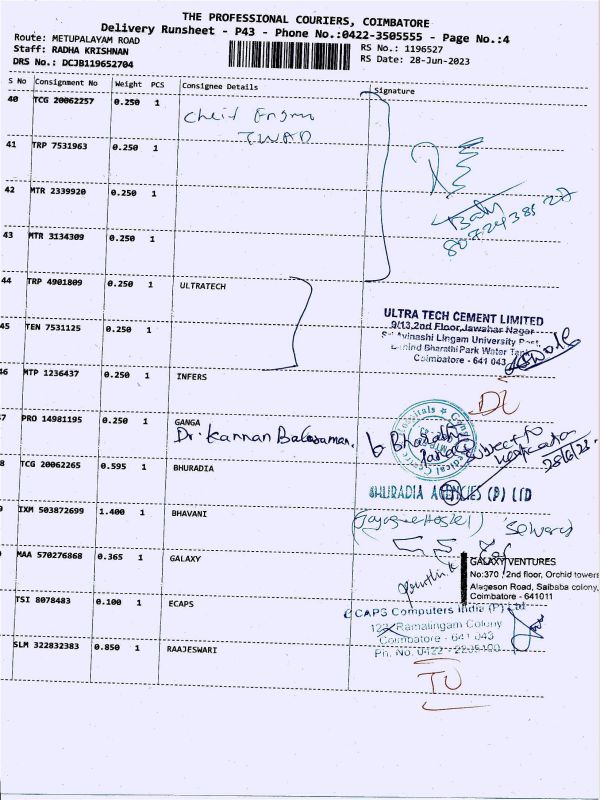 THE PROFESSIONAL COURIERS, COIMBATORE
Delivery Runsheet - P43 - Phone No.:0422-3505555 - Page No.:4
Route: METUPALAYAM ROAD
RS No.: 1196527
Staff: RADHA KRISHNAN
RS Date: 28-Jun-2023
DRS No.: DCJB119652704
S No Consignment No Weight PCS Consignee Details Signature
40 TCG 20062257 0.250 1
TWAD
41 TRP 7531963 0.250 1
42 MTR 2339920 0.250 1
43 MTR 3134309 0.250 1
44 TRP 4901809 0.250 1 ULTRATECH
ULTRA TECH CEMENT LIMITED
9/13,2nd Floor,Jawahar Nagar
Avinashi Lingam University Post,
Behind Bharathi Park Water Tank
Coimbatore - 641 043
45 TEN 7531125 0.250 1
46 MTP 1236437 0.250 1 INFERS
DL
7 PRO 14981195 0.250 1 GANGA
Dr. Kannan
8 TCG 20062265 0.595 1 BHURADIA
BHURADIA AGENCIES (P) LTD
9 IXM 503872699 1.400 1 BHAVANI
0 MAA 570276868 0.365 1 GALAXY
GALAXY VENTURES
No:370, 2nd floor, Orchid towers
Alageson Road, Saibaba colony,
Coimbatore - 641011
TSI 8078483 0.100 1 ECAPS
ECAPS Computers India (P) Ltd
Ramalingam Colony
Coimbatore - 641 043
Ph. No. 0422 -
SLM 322832383 0.850 1 RAAJESWARI